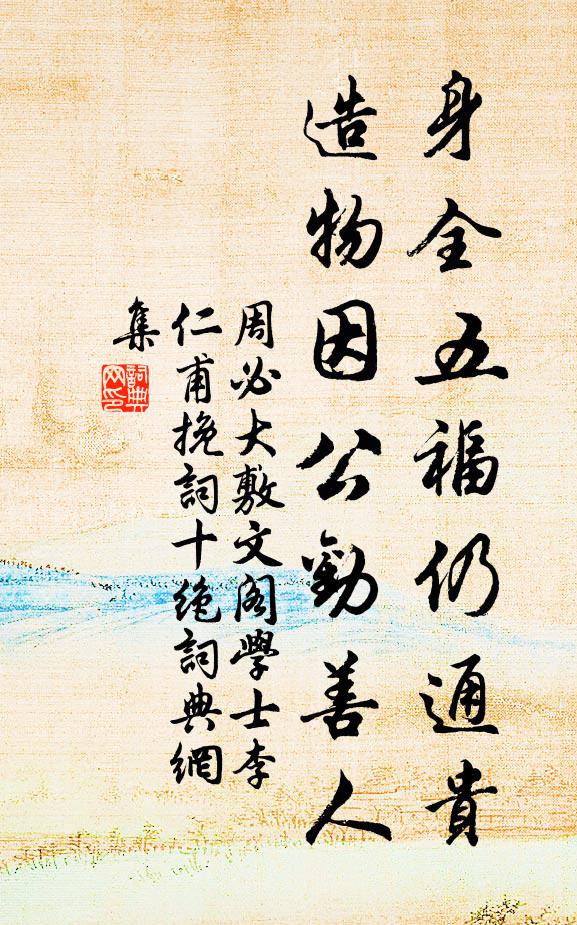 身全五福仍通貴
造物因公勸善人
周必大敷文閣學士李
仁甫挽詞十絕詞典網
集
詞典
网印